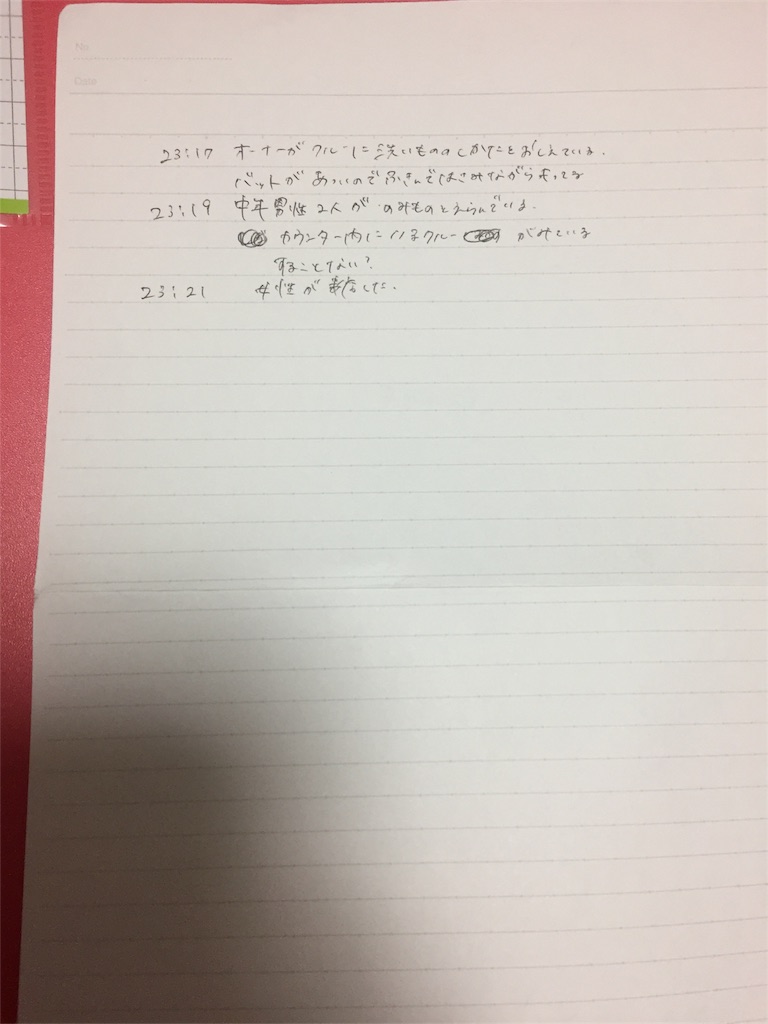 No.
Date
23:17 オーナーがクルーに洗いもののしかたをおしえている.
バットがあついのでふきんではさみながらもってる
23:19 中年男性2人がのみものをえらんでいる.
カウンター内にいるクルーがみている
することない?
23:21 女性が来店した.